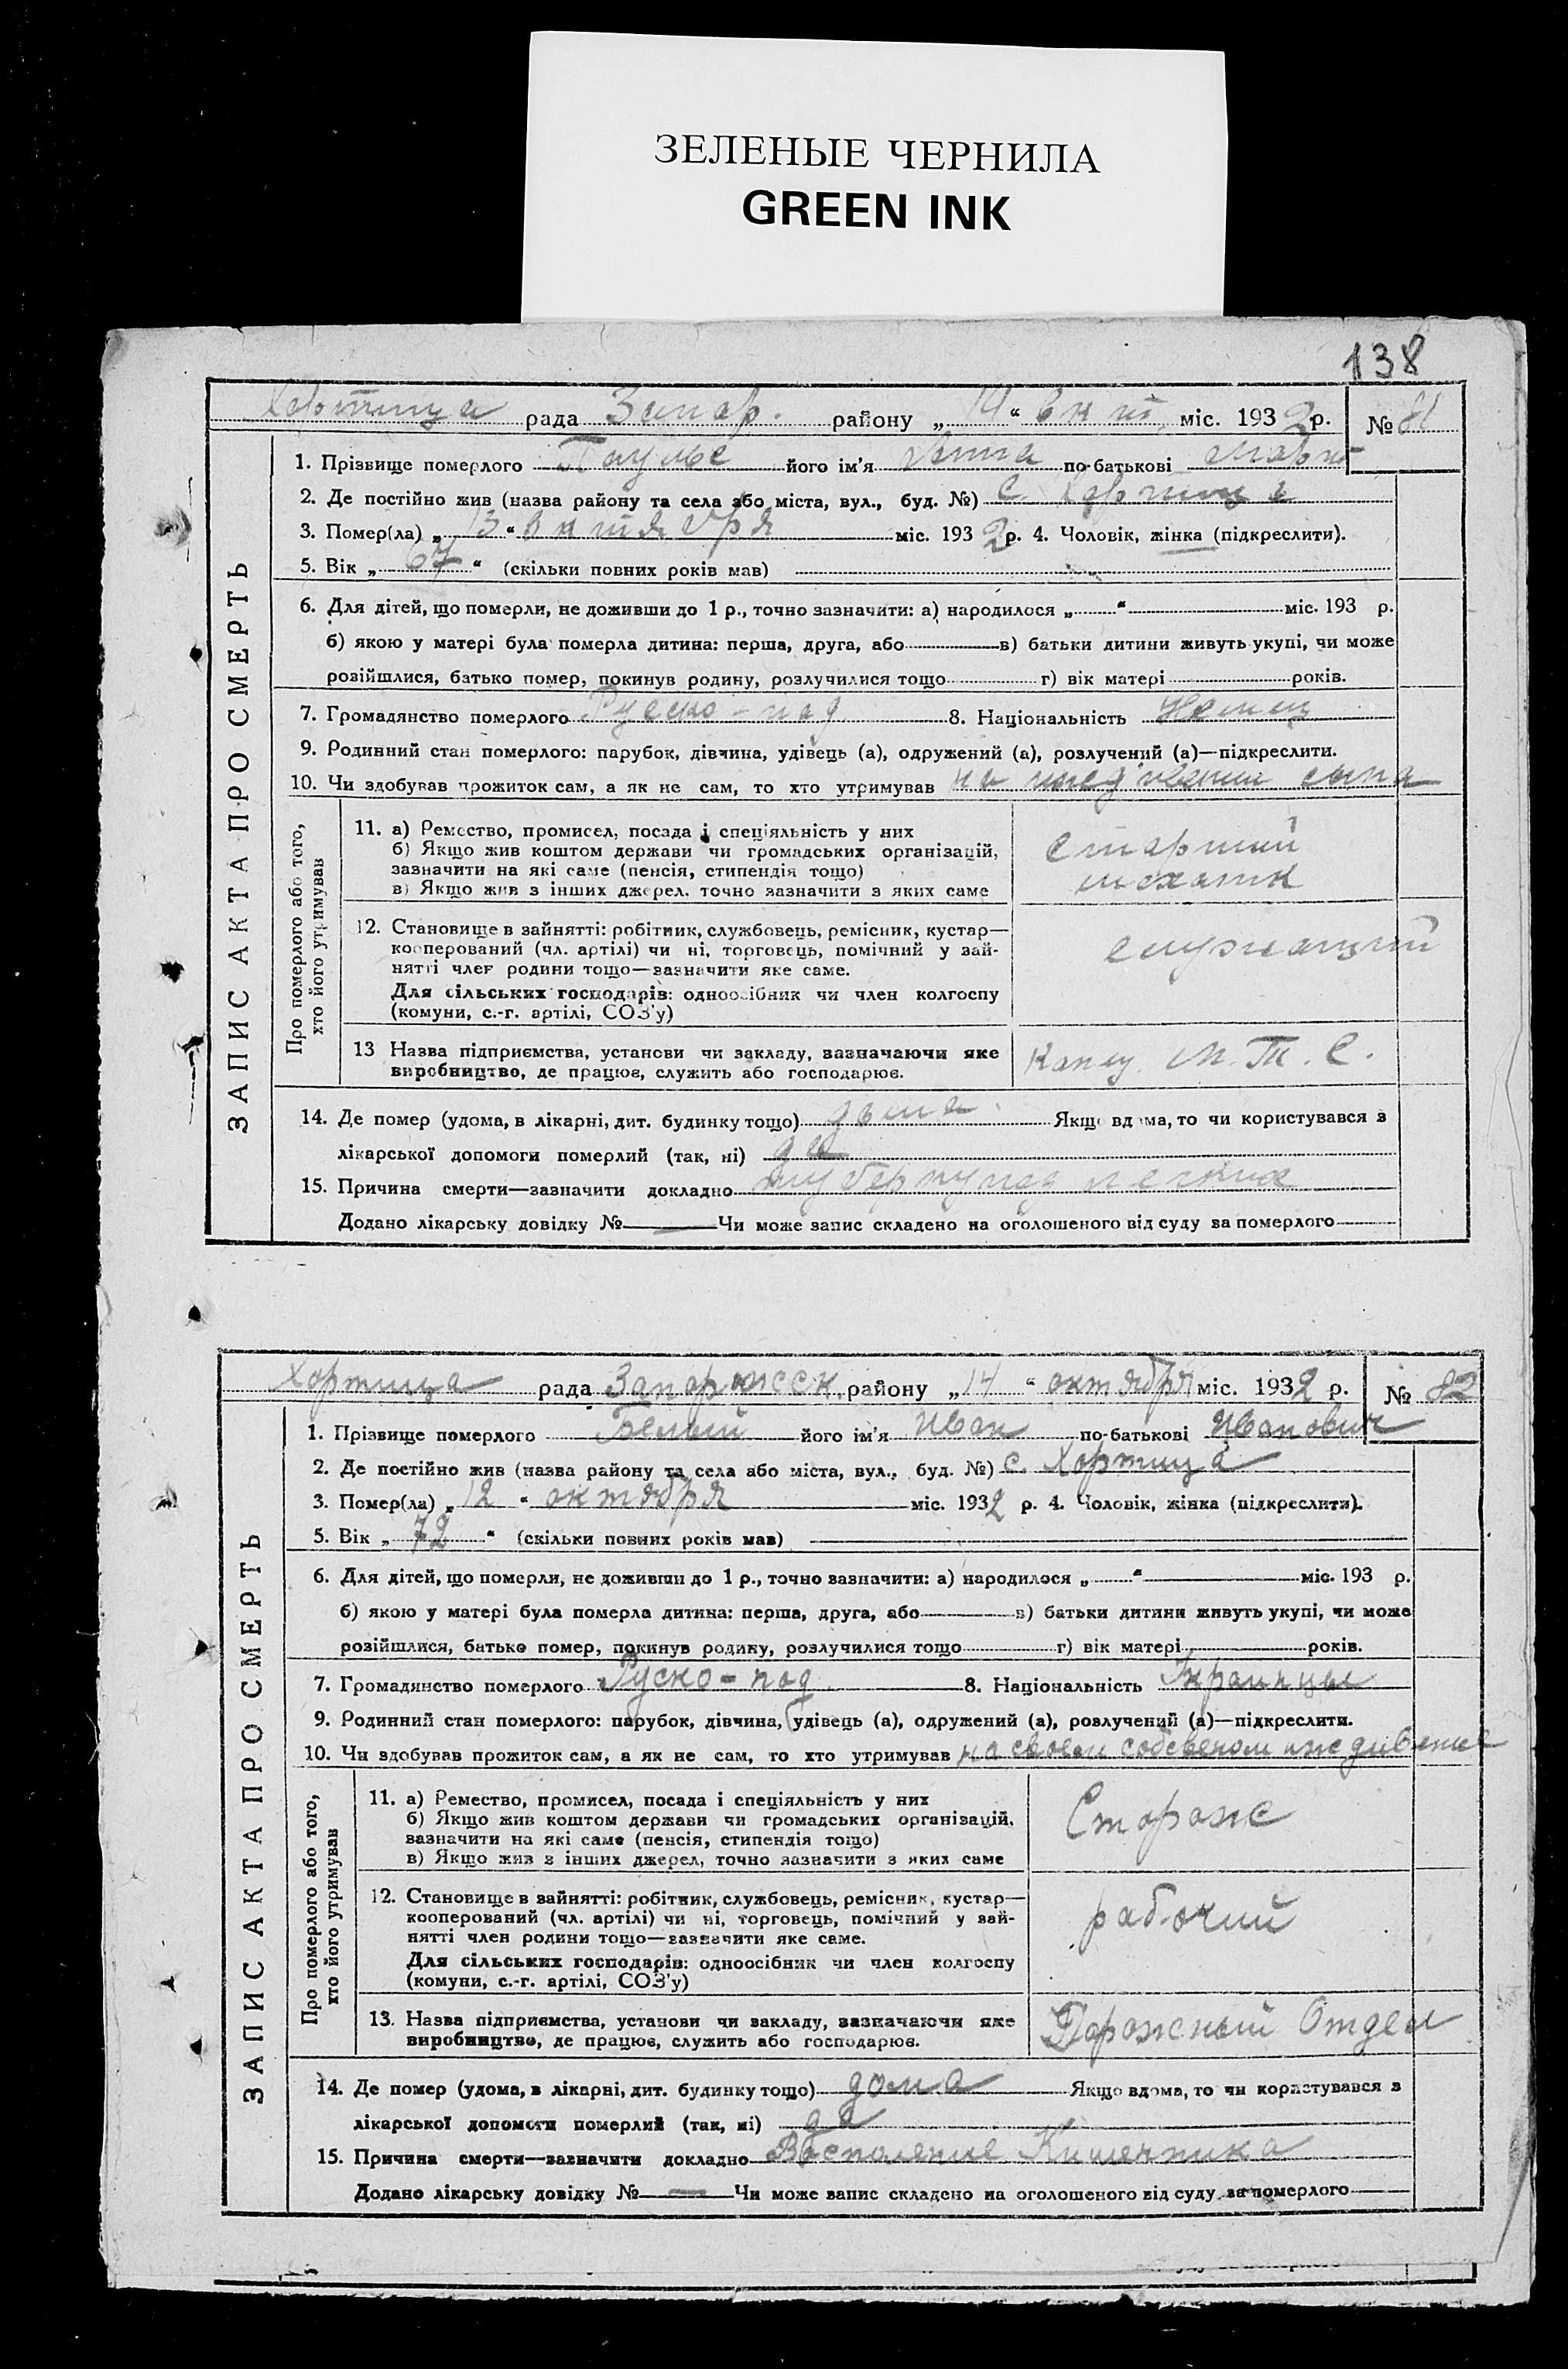 ЗЕЛЕНЫЕ ЧЕРНИЛА
GREEN INK
138
Хортица рада Запор. району „14“ окт. міс. 1932 р. № 81
1. Прізвище померлого його ім'я Анна по-батькові
2. Де постійно жив (назва району та села або міста, вул., буд. №) с. Хортица
3. Помер(ла) „13“ октября міс. 1932 р. 4. Чоловік, жінка (підкреслити).
5. Вік „67“ (скільки повних років мав)
6. Для дітей, що померли, не доживши до 1 р., точно зазначити: а) народилося „ “ міс. 193 р.
б) якою у матері була померла дитина: перша, друга, або в) батьки дитини живуть укупі, чи може
розійшлися, батько помер, покинув родину, розлучилися тощо г) вік матері років.
7. Громадянство померлого Руско-под 8. Національність Немец
9. Родинний стан померлого: парубок, дівчина, удівець (а), одружений (а), розлучений (а)—підкреслити.
10. Чи здобував прожиток сам, а як не сам, то хто утримував на сына
ЗАПИС АКТА ПРО СМЕРТЬ
Про померлого або того,
хто його утримував
11. а) Ремество, промисел, посада і спеціяльність у них
б) Якщо жив коштом держави чи громадських організацій,
зазначити на які саме (пенсія, стипендія тощо)
в) Якщо жив з інших джерел, точно зазначити з яких саме
старший
механик
12. Становище в зайнятті: робітник, службовець, ремісник, кустар—
кооперований (чл. артілі) чи ні, торговець, помічний у зай-
нятті член родини тощо—зазначити яке саме.
Для сільських господарів: одноосібник чи член колгоспу
(комуни, с.-г. артілі, СОЗ'у)
служащий
13 Назва підприємства, установи чи закладу, зазначаючи яке
виробництво, де працює, служить або господарює.
М.Т.С.
14. Де помер (удома, в лікарні, дит. будинку тощо) дома Якщо вдома, то чи користувався з
лікарської допомоги померлий (так, ні) да
15. Причина смерти—зазначити докладно легких
Додано лікарську довідку № — Чи може запис складено на оголошеного від суду за померлого
Хортица рада Запорожск. району „14“ октября міс. 1932 р. № 82
1. Прізвище померлого Белый його ім'я Иван по-батькові Иванович
2. Де постійно жив (назва району та села або міста, вул., буд. №) с. Хортица
3. Помер(ла) „12“ октября міс. 1932 р. 4. Чоловік, жінка (підкреслити).
5. Вік „72“ (скільки повних років мав)
6. Для дітей, що померли, не доживши до 1 р., точно зазначити: а) народилося „ “ міс. 193 р.
б) якою у матері була померла дитина: перша, друга, або в) батьки дитини живуть укупі, чи може
розійшлися, батько помер, покинув родину, розлучилися тощо г) вік матері років.
7. Громадянство померлого Руско-под 8. Національність
9. Родинний стан померлого: парубок, дівчина, удівець (а), одружений (а), розлучений (а)—підкреслити.
10. Чи здобував прожиток сам, а як не сам, то хто утримував на своем
ЗАПИС АКТА ПРО СМЕРТЬ
Про померлого або того,
хто його утримував
11. а) Ремество, промисел, посада і спеціяльність у них
б) Якщо жив коштом держави чи громадських організацій,
зазначити на які саме (пенсія, стипендія тощо)
в) Якщо жив з інших джерел, точно зазначити з яких саме
Сторож
12. Становище в зайнятті: робітник, службовець, ремісник, кустар—
кооперований (чл. артілі) чи ні, торговець, помічний у зай-
нятті член родини тощо—зазначити яке саме.
Для сільських господарів: одноосібник чи член колгоспу
(комуни, с.-г. артілі, СОЗ'у)
рабочий
13. Назва підприємства, установи чи закладу, зазначаючи яке
виробництво, де працює, служить або господарює.
Отдел
14. Де помер (удома, в лікарні, дит. будинку тощо) дома Якщо вдома, то чи користувався з
лікарської допомоги померлий (так, ні) да
15. Причина смерти—зазначити докладно Восполение Кишечника
Додано лікарську довідку № — Чи може запис складено на оголошеного від суду за померлого